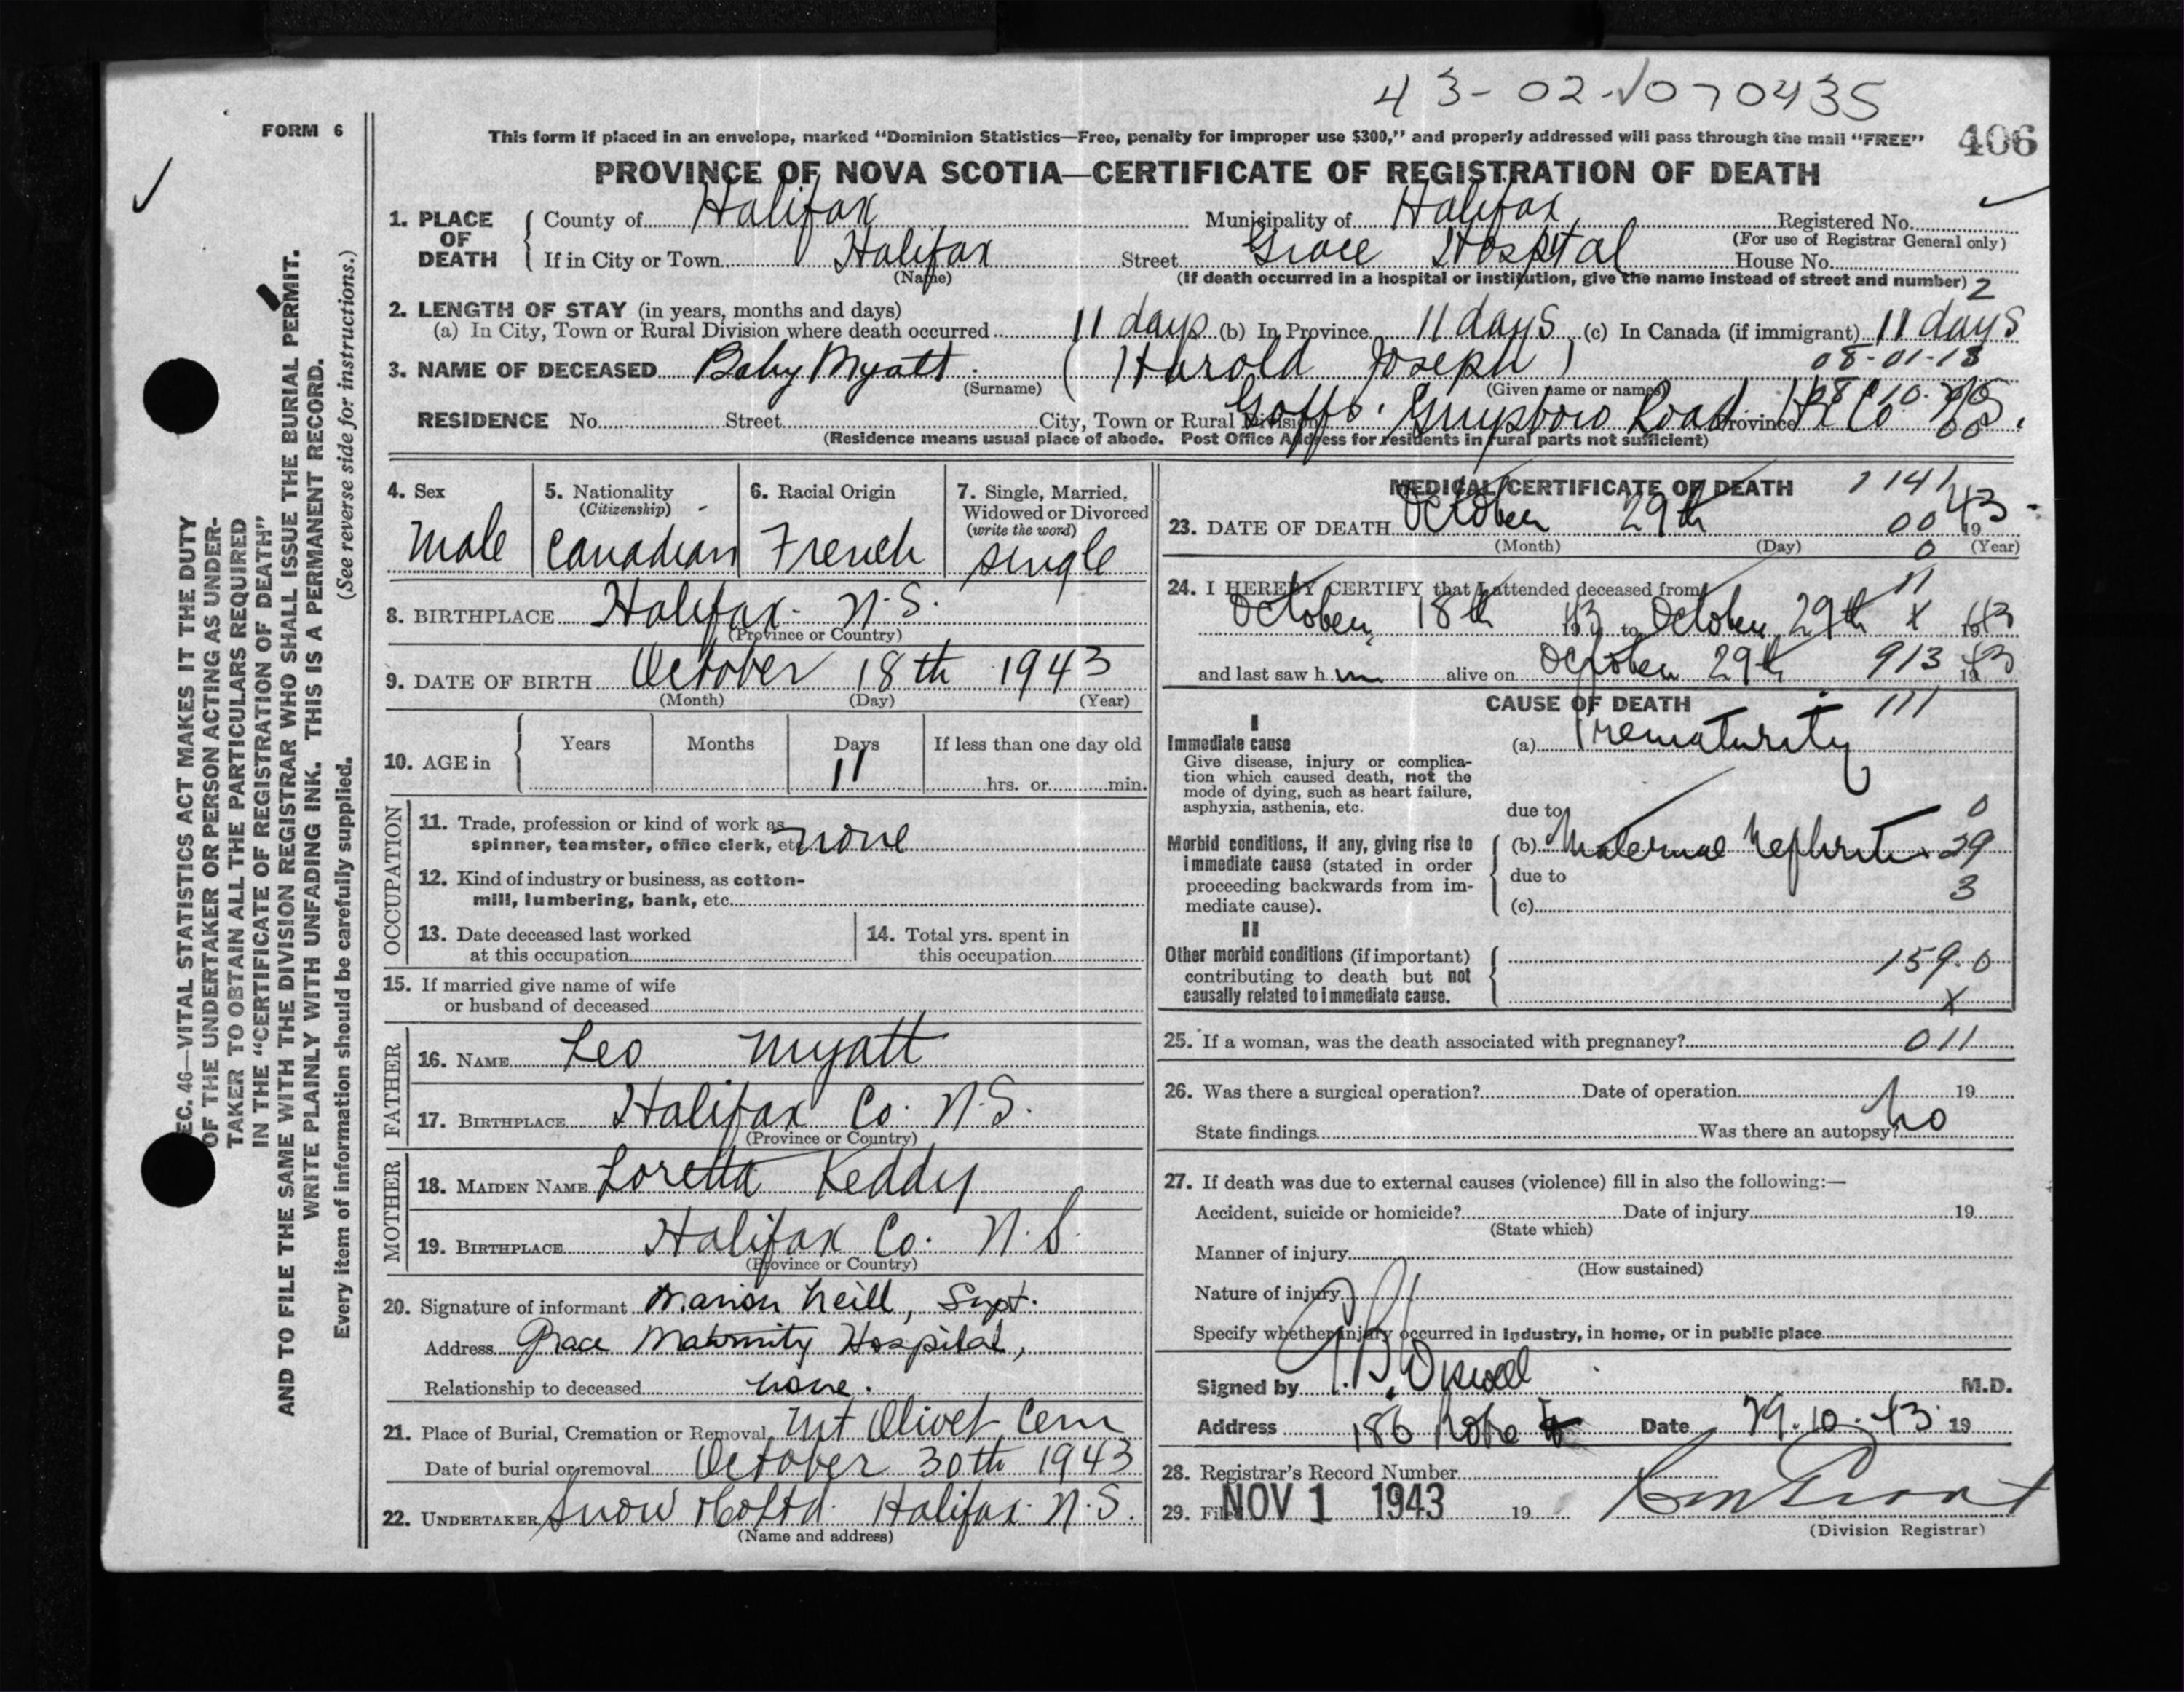 43-02-070435
FORM 6
This form if placed in an envelope, marked "Dominion Statistics—Free, penalty for improper use $300," and properly addressed will pass through the mail "FREE"
406
PROVINCE OF NOVA SCOTIA—CERTIFICATE OF REGISTRATION OF DEATH
1. PLACE OF DEATH
County of Halifax Municipality of Halifax Registered No.
(For use of Registrar General only)
If in City or Town Halifax Street Grace Hospital House No.
(Name) (If death occurred in a hospital or institution, give the name instead of street and number) 2
2. LENGTH OF STAY (in years, months and days)
(a) In City, Town or Rural Division where death occurred 11 days (b) In Province 11 days (c) In Canada (if immigrant) 11 days
08-01-13
3. NAME OF DECEASED Baby Myatt (Harold Joseph)
(Surname) (Given name or names)
RESIDENCE No. Street City, Town or Rural Division Goffs. Guysboro Road Province Hx Co N.S.
(Residence means usual place of abode. Post Office Address for residents in rural parts not sufficient)
4. Sex
Male
5. Nationality
(Citizenship)
Canadian
6. Racial Origin
French
7. Single, Married, Widowed or Divorced
(write the word)
single
8. BIRTHPLACE Halifax N.S.
(Province or Country)
9. DATE OF BIRTH October 18th 1943
(Month) (Day) (Year)
10. AGE in Years Months Days If less than one day old
11 hrs. or min.
OCCUPATION
11. Trade, profession or kind of work as
spinner, teamster, office clerk, etc. none
12. Kind of industry or business, as cotton-
mill, lumbering, bank, etc.
13. Date deceased last worked
at this occupation
14. Total yrs. spent in
this occupation
15. If married give name of wife
or husband of deceased
FATHER
16. NAME Leo Myatt
17. BIRTHPLACE Halifax Co. N.S.
(Province or Country)
MOTHER
18. MAIDEN NAME Loretta Keddy
19. BIRTHPLACE Halifax Co. N.S.
(Province or Country)
20. Signature of informant Marion Neill, Supt.
Address Grace Maternity Hospital,
Relationship to deceased none.
21. Place of Burial, Cremation or Removal Mt Olivet Cem
Date of burial or removal October 30th 1943
22. UNDERTAKER Snow & Co Ltd. Halifax N.S.
(Name and address)
MEDICAL CERTIFICATE OF DEATH 1141
23. DATE OF DEATH October 29th 00 1943
(Month) (Day) 0 (Year)
24. I HEREBY CERTIFY that I attended deceased from
October 18th 1943 to October 29th x 1943
and last saw him alive on October 29th 913 1943
CAUSE OF DEATH 111
I
Immediate cause
Give disease, injury or complica-
tion which caused death, not the
mode of dying, such as heart failure,
asphyxia, asthenia, etc.
(a) Prematurity
due to 0
Morbid conditions, if any, giving rise to
immediate cause (stated in order
proceeding backwards from im-
mediate cause).
(b) Maternal Nephritis 29
due to 3
(c)
II
Other morbid conditions (if important)
contributing to death but not
causally related to immediate cause.
159.0
x
25. If a woman, was the death associated with pregnancy? 011
26. Was there a surgical operation? Date of operation 19
State findings Was there an autopsy? No
27. If death was due to external causes (violence) fill in also the following:—
Accident, suicide or homicide? Date of injury 19
(State which)
Manner of injury
(How sustained)
Nature of injury
Specify whether injury occurred in industry, in home, or in public place
Signed by M.D.
Address 186 Date 29.10.43 19
28. Registrar's Record Number
29. Filed NOV 1 1943 19
(Division Registrar)
SEC. 46—VITAL STATISTICS ACT MAKES IT THE DUTY
OF THE UNDERTAKER OR PERSON ACTING AS UNDER-
TAKER TO OBTAIN ALL THE PARTICULARS REQUIRED
IN THE "CERTIFICATE OF REGISTRATION OF DEATH"
AND TO FILE THE SAME WITH THE DIVISION REGISTRAR WHO SHALL ISSUE THE BURIAL PERMIT.
WRITE PLAINLY WITH UNFADING INK. THIS IS A PERMANENT RECORD.
Every item of information should be carefully supplied. (See reverse side for instructions.)